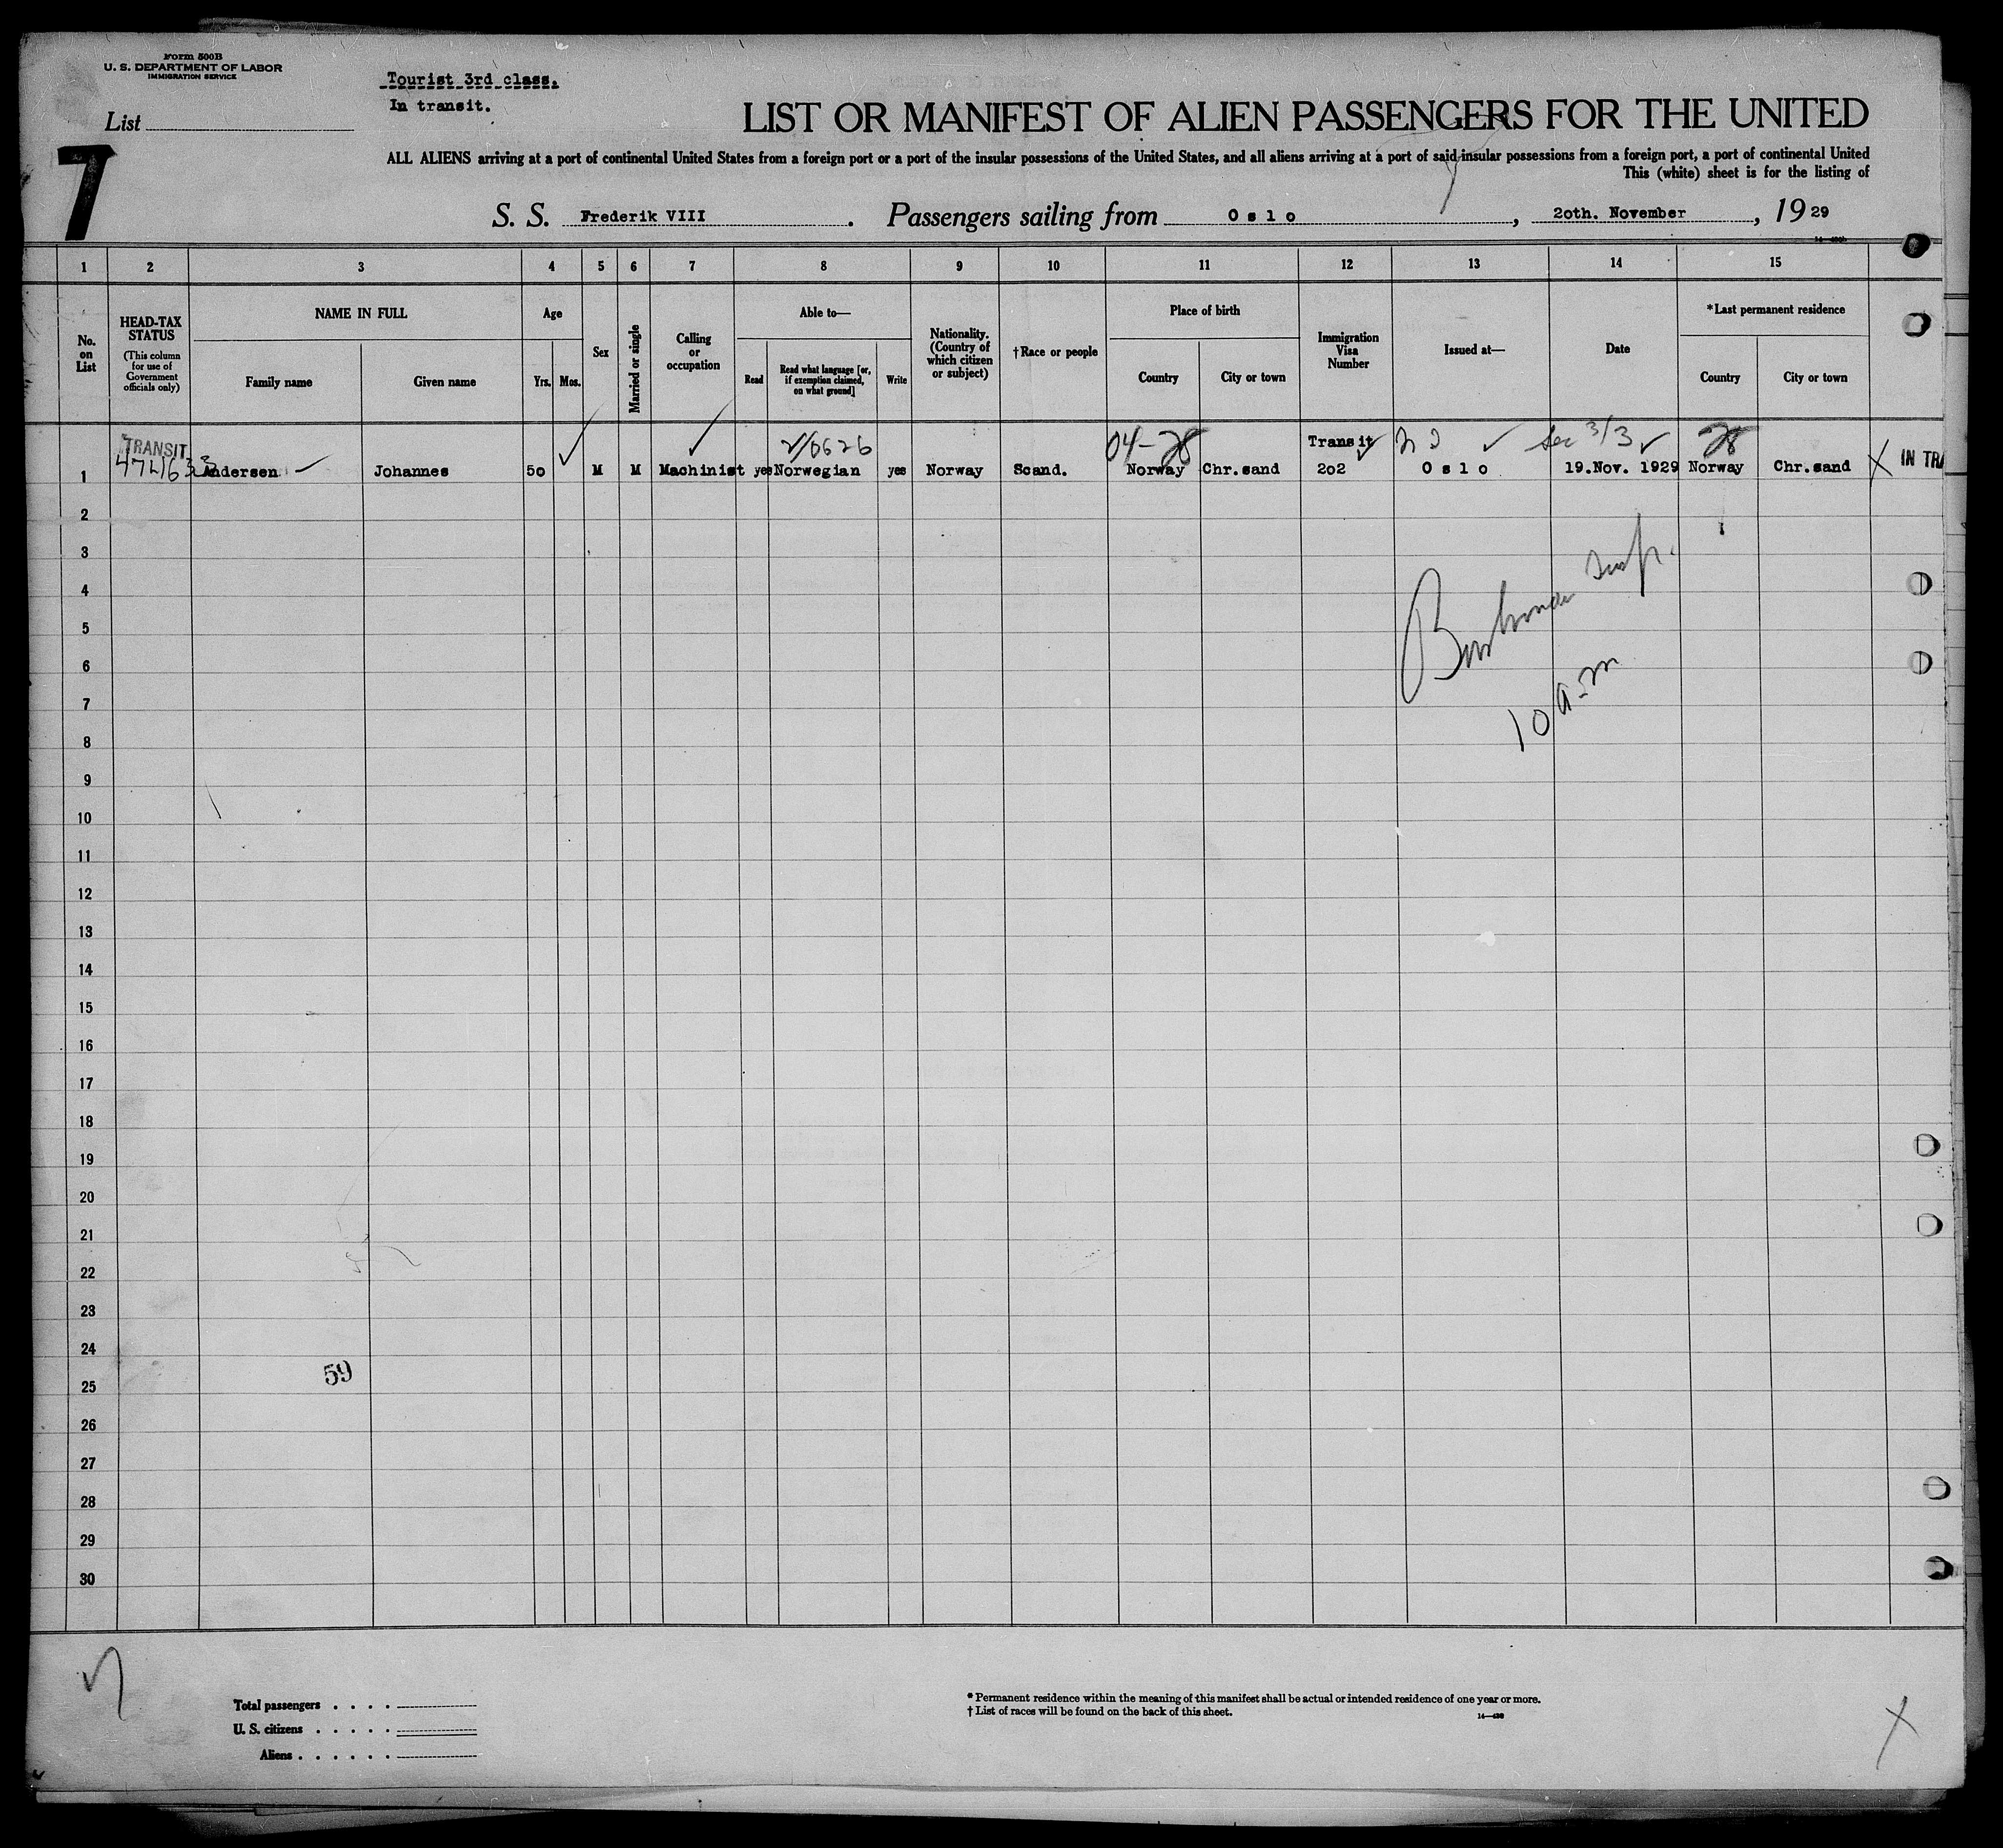 Form 500B
U. S. DEPARTMENT OF LABOR
IMMIGRATION SERVICE
Tourist 3rd class.
In transit.
List
7
LIST OR MANIFEST OF ALIEN PASSENGERS FOR THE UNITED
ALL ALIENS arriving at a port of continental United States from a foreign port or a port of the insular possessions of the United States, and all aliens arriving at a port of said insular possessions from a foreign port, a port of continental United
This (white) sheet is for the listing of
S. S. Frederik VIII. Passengers sailing from Oslo, 20th. November, 1929
1 2 3 4 5 6 7 8 9 10 11 12 13 14 15
No. on List
HEAD-TAX STATUS
(This column for use of Government officials only)
NAME IN FULL
Family name
Given name
Age
Yrs. Mos.
Sex
Married or single
Calling or occupation
Able to—
Read
Read what language [or, if exemption claimed, on what ground]
Write
Nationality. (Country of which citizen or subject)
†Race or people
Place of birth
Country
City or town
Immigration Visa Number
Issued at—
Date
*Last permanent residence
Country
City or town
TRANSIT 2/6626 04-28 Transit Sec 3/3 28
1 Andersen Johannes 50 M M Machinist yes Norwegian yes Norway Scand. Norway Chr.sand 202 Oslo 19.Nov. 1929 Norway Chr.sand X IN TRA
2
3
4
5
6
7
10 a-m
8
9
10
11
12
13
14
15
16
17
18
19
20
21
22
23
24
59
25
26
27
28
29
30
Total passengers . . . .
U. S. citizens . . . . .
Aliens . . . . . .
* Permanent residence within the meaning of this manifest shall be actual or intended residence of one year or more.
† List of races will be found on the back of this sheet.
X